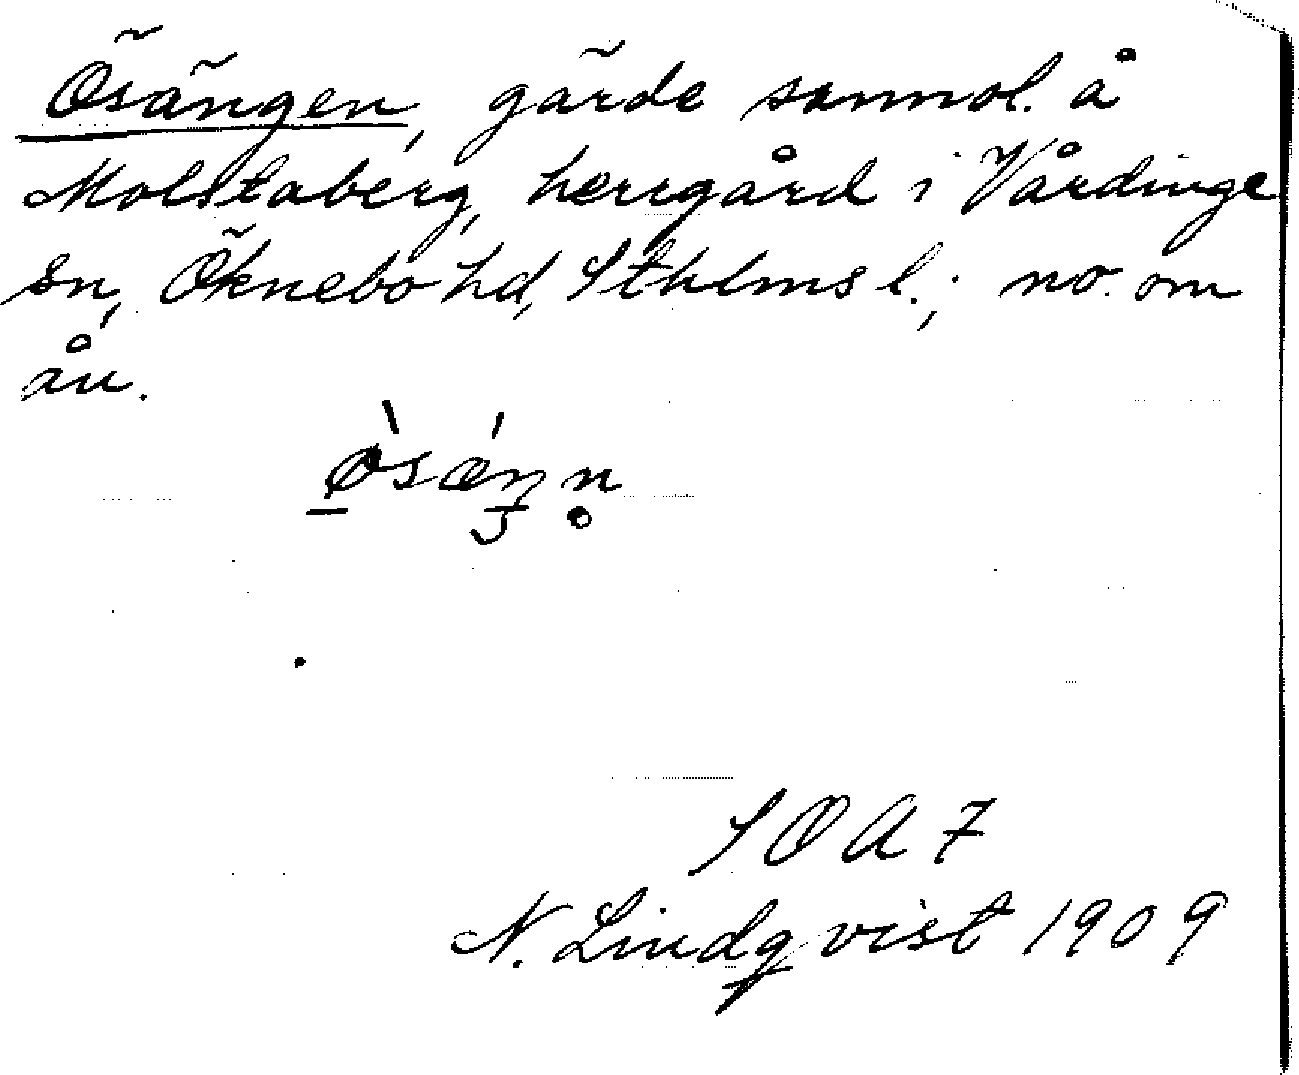 Ösängen, gärde sannol. å
Molstaberg, herrgård i Vårdinge
sn, Öknebo hd, Sthlms l.; no. om
ån.
ø̠̀sǽŋn̥
SOA 7
N. Lindqvist 1909